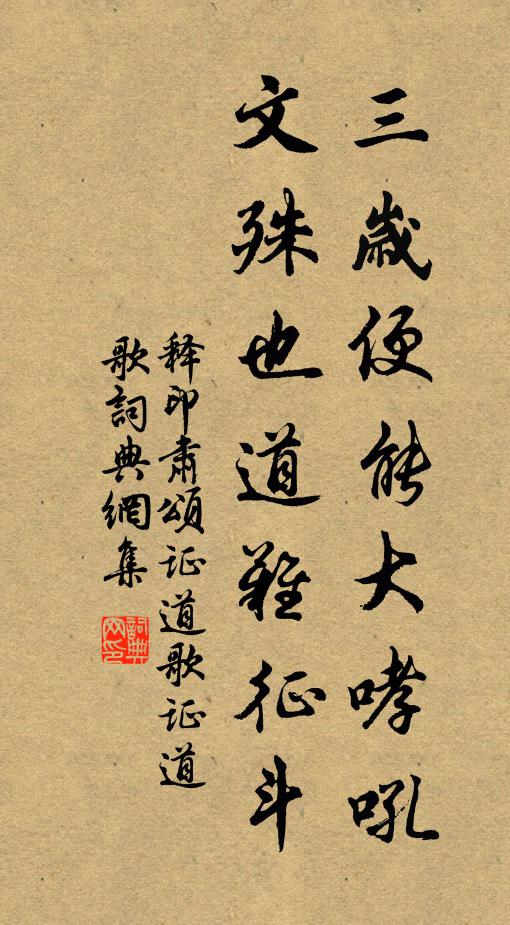 三歲便能大哮吼
文殊也道難征斗
释印肅頌证道歌证道
歌詞典網集
詞典
网印